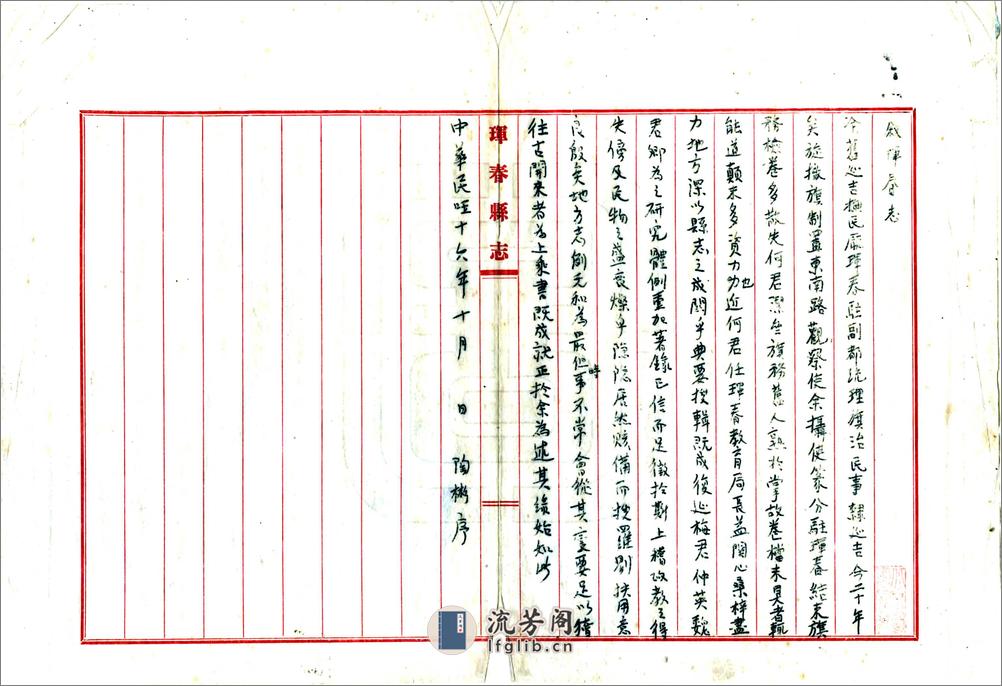 敘琿春志
冷舊延吉撫民廳琿春駐副都統理旗治民事隸延吉今二十年
矣旋撤旗制置東南路觀察使余攝使篆分駐琿春結束旗
務檢卷多散失何君潔珊旗務舊人熟於掌故卷檔未具者輒
能道顛末多資力也近何君任琿春教育局長益關心桑梓盡
力地方深以縣志之成關乎典要搜輯既成復延梅君仲英魏
君卿為之研究體例重加著錄已信而足徵於斯上稽政教之得
失傍及民物之盛衰燦乎隱隱居然賅備而搜羅剔抉用意
良殷矣地方志創元和為最但時事不常會從其宜要足以稽
往古開來者為上乘書既成就正於余為述其績始如此
中華民國十六年十月 日 陶彬序
琿春縣志
流芳阁
lfglib.cn